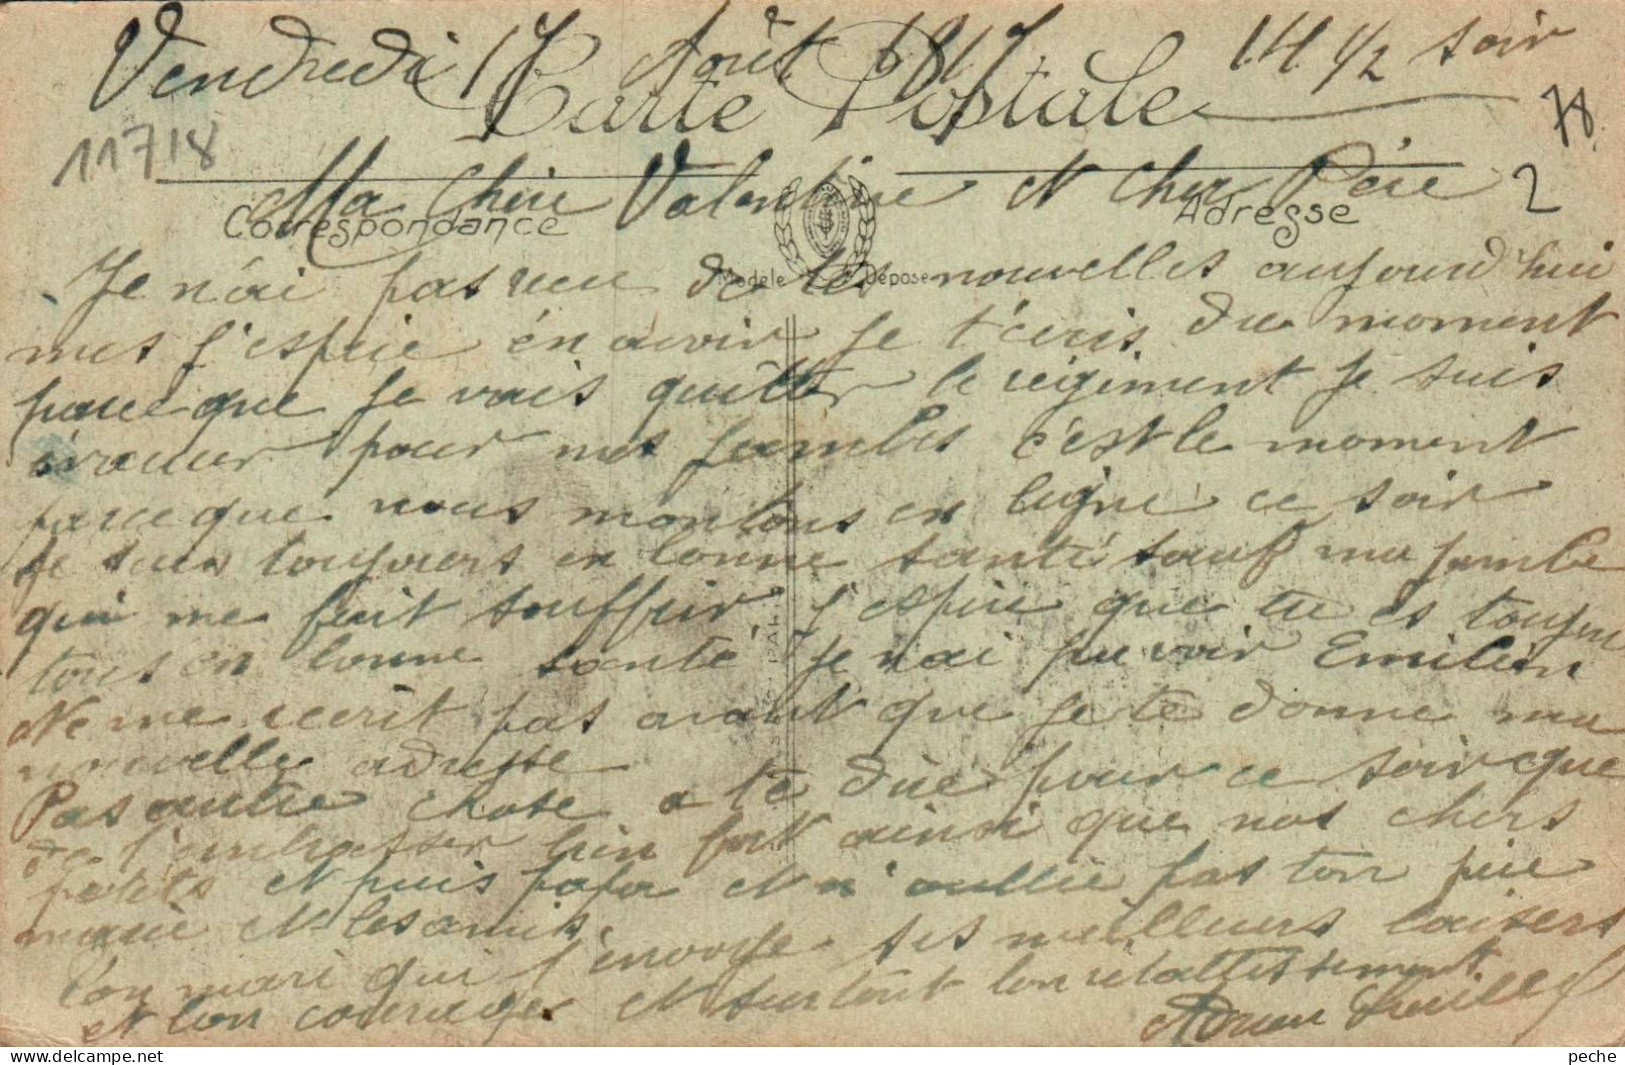 Vendredi 17 Août 1917 14 1/2 soir
Carte Postale
11718
78
2
Ma Chère Valentine et Cher Père
Correspondance
Adresse
Modèle Déposé
Je n'ai pas reçu de tes nouvelles aujourd'hui
mes j'espère én avoir Je t'écris du moment
parce que Je vais quitter le régiment Je suis
évacuer pour mes jambes c'est le moment
parce que nous montons en ligne ce soir
Je suis toujours en bonne santé sauf ma jambe
qui me fait souffrir J'espère que tu es toujour
tous en bonne santé Je n'ai pu voir Emilien
Ne me écrit pas avant que Je te donne ma
nouvelle adresse
Pas autre chose a te dire pour ce soir que
de t'embrasser bien fort ainsi que nos chers
petits et puis papa et n'oublie pas ton père
mère et les amis
Ton mari qui t'envoye ses meilleurs baisers
et bon courage et surtout bon rétablissement
Adrien